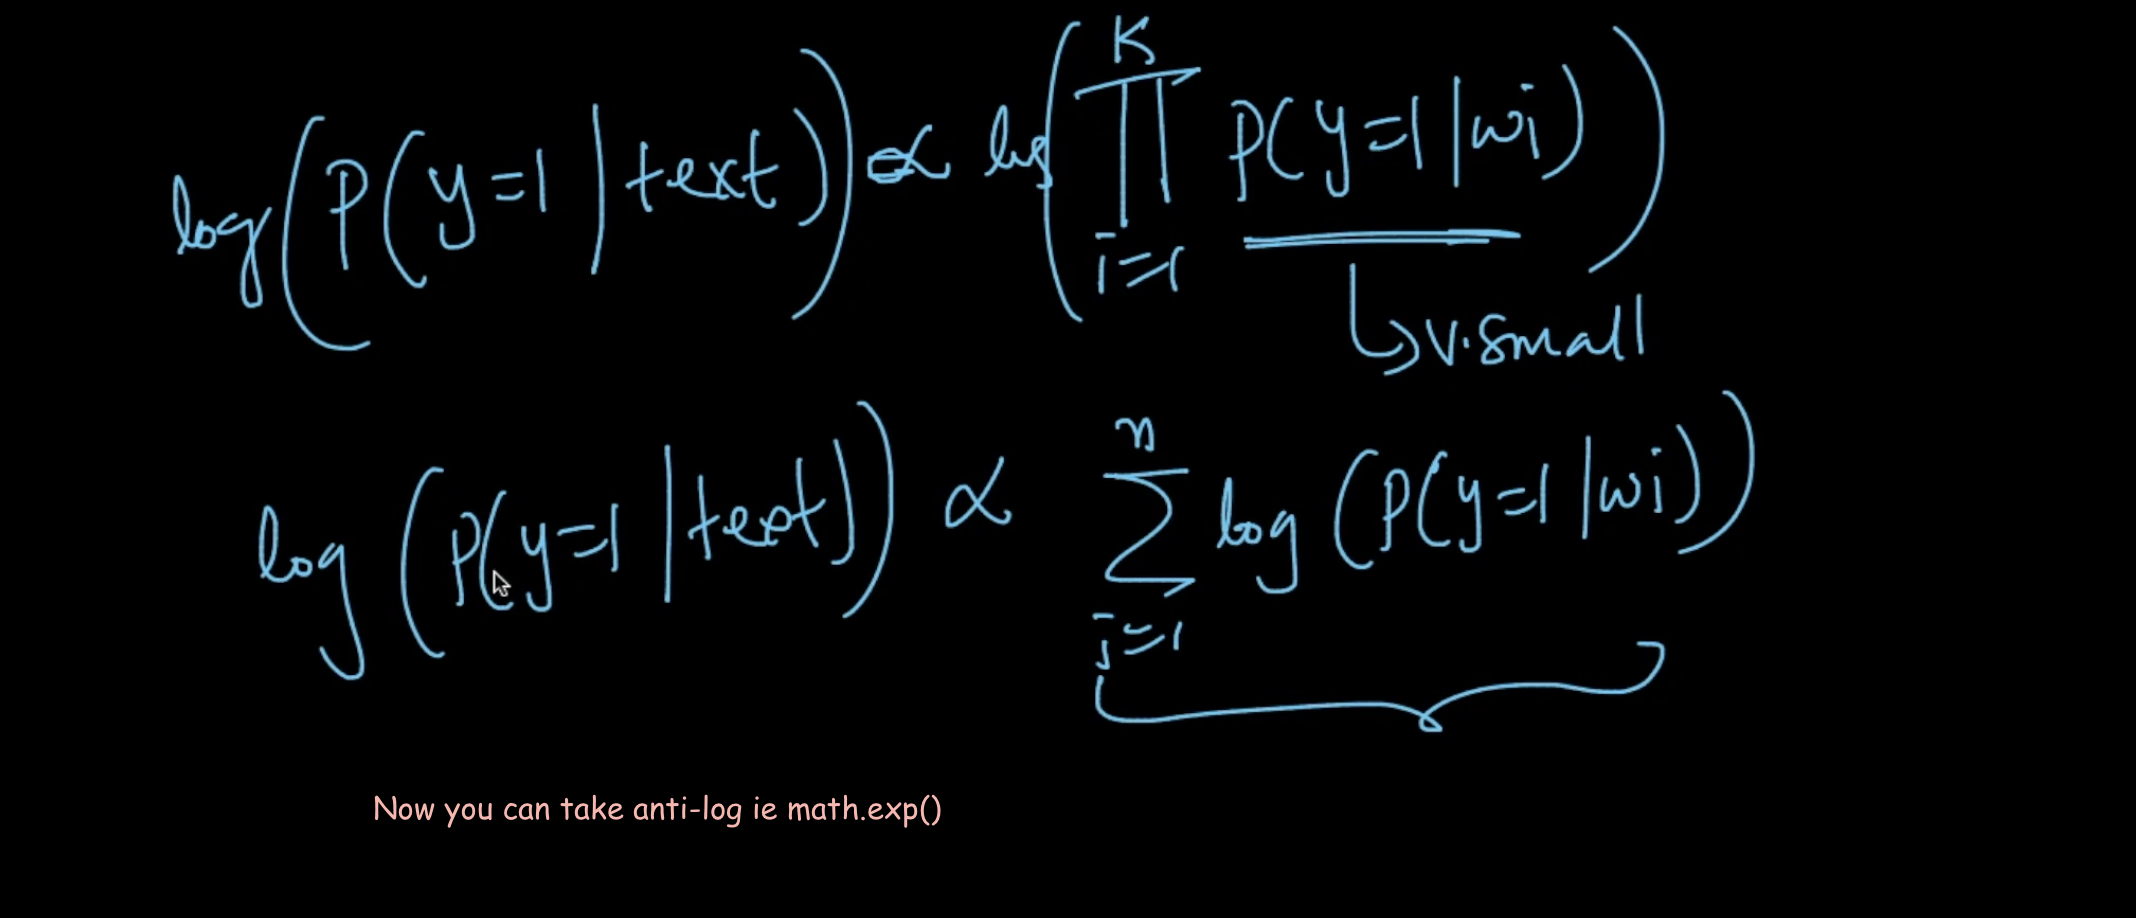 log(P(y=1|text)) ∝ log(∏ᵢ₌₁ᴷ P(y=1|wi))
↳ v.small
log(P(y=1|text)) ∝ ∑ᵢ₌₁ⁿ log(P(y=1|wi))
Now you can take anti-log ie math.exp()